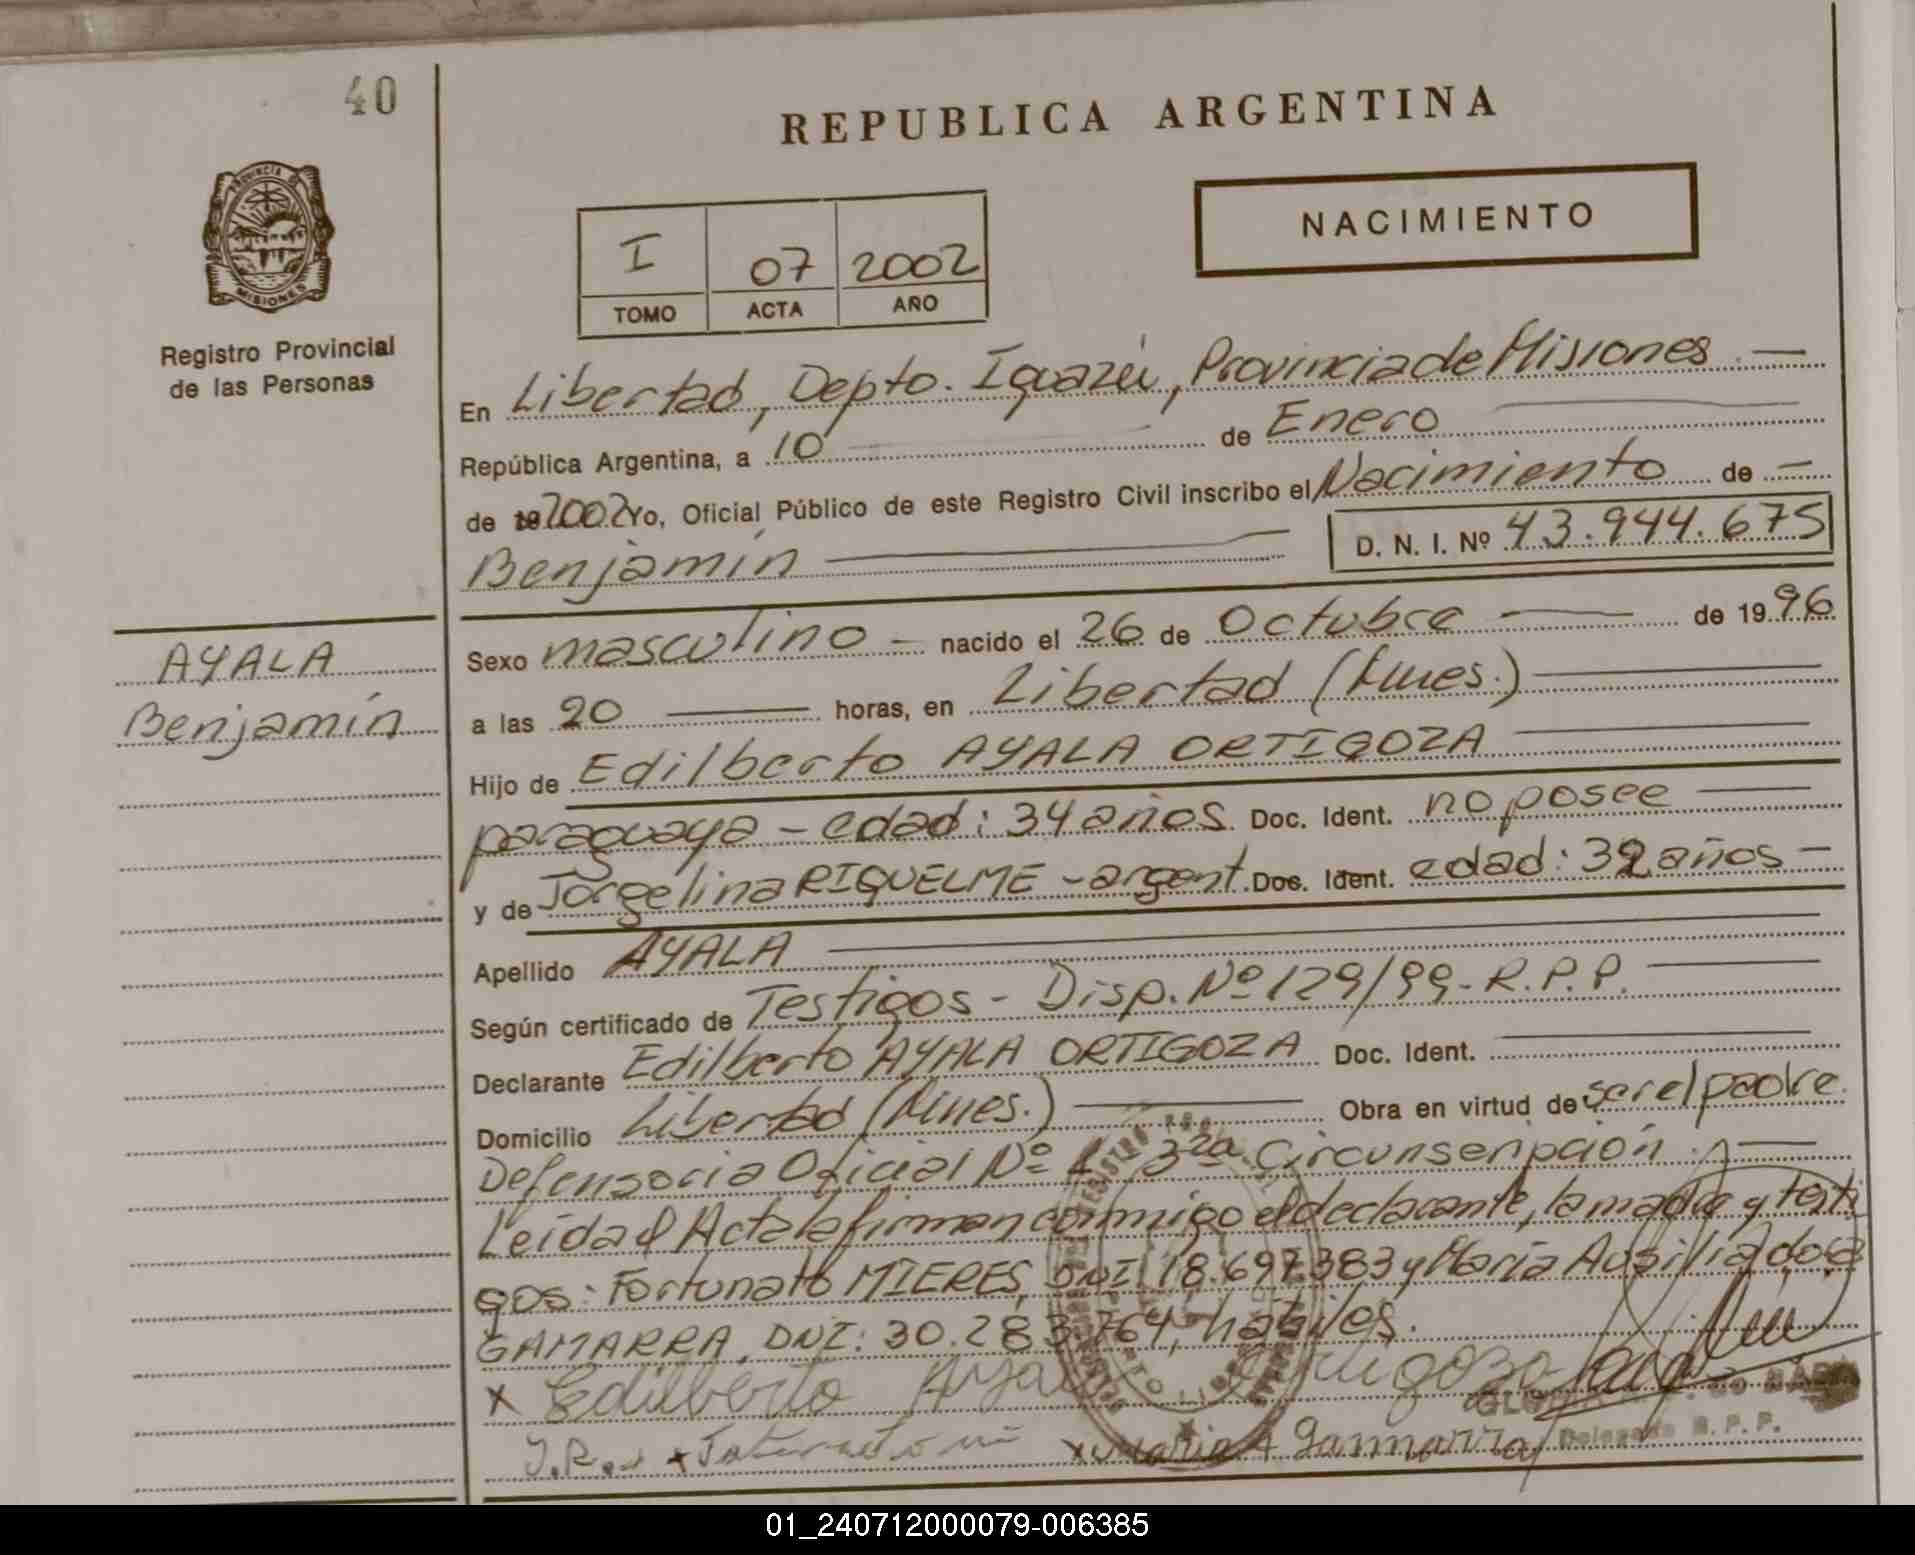 40
REPUBLICA ARGENTINA
PROVINCIA DE
MISIONES
Registro Provincial
de las Personas
I 07 2002
TOMO ACTA AÑO
NACIMIENTO
En Libertad, Depto. Iguazú, Provincia de Misiones.—
República Argentina, a 10 de Enero
de 19 2002 Yo, Oficial Público de este Registro Civil inscribo el Nacimiento de —
Benjamín D. N. I. Nº 43.944.675
AYALA
Benjamín
Sexo masculino — nacido el 26 de Octubre de 1996
a las 20 horas, en Libertad (Mnes.)
Hijo de Edilberto AYALA ORTIGOZA
paraguaya - edad: 34 años Doc. Ident. no posee
y de Jorgelina RIQUELME - argent. Doc. Ident. edad: 32 años —
Apellido AYALA
Según certificado de Testigos - Disp. Nº 129/99 - R.P.P.
Declarante Edilberto AYALA ORTIGOZA Doc. Ident.
Domicilio Libertad (Mnes.) Obra en virtud de ser el padre.
Defensoria Oficial Nº 3ra Circunscripción.
Leída el Acta la firman conmigo el declarante, la madre y testi
gos: Fortunato MIERES, DNI 18.697.383 y María Auxiliadora
GAMARRA, DNI: 30.283.764, hábiles.
x Edilberto Ayala Ortigoza
J.R. x x Maria A Gammarra
Delegada R.P.P.
01_240712000079-006385